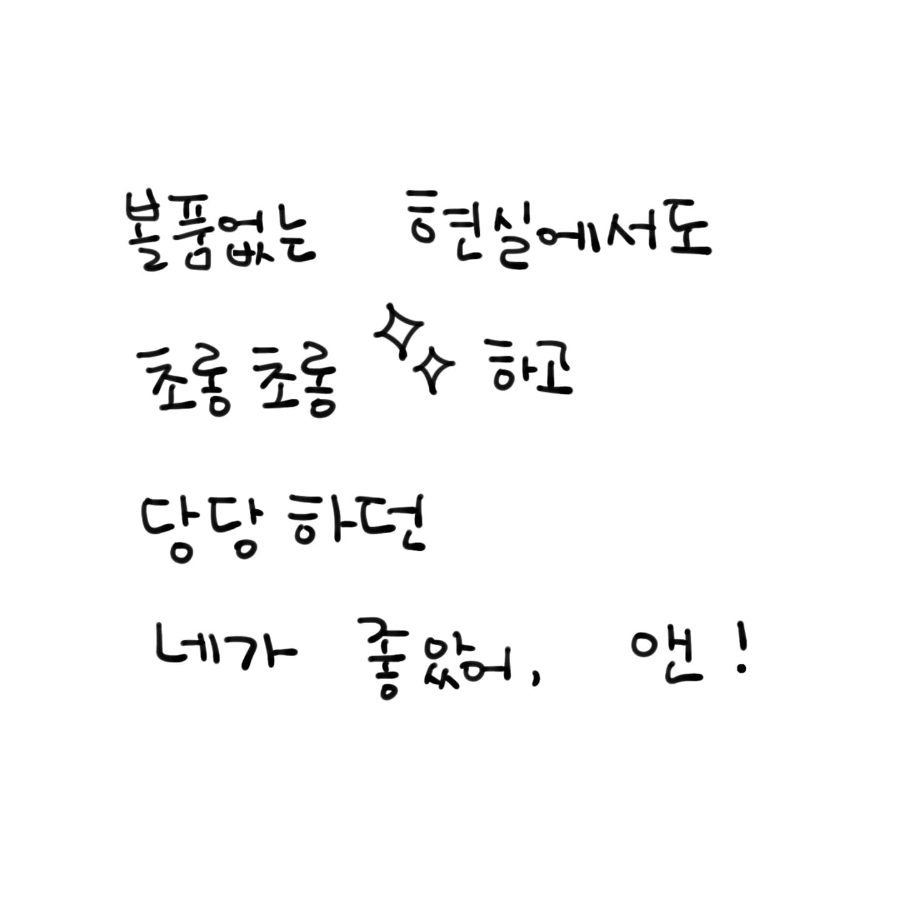 볼품없는 현실에서도
초롱초롱 하고
당당하던
네가 좋았어, 앤!